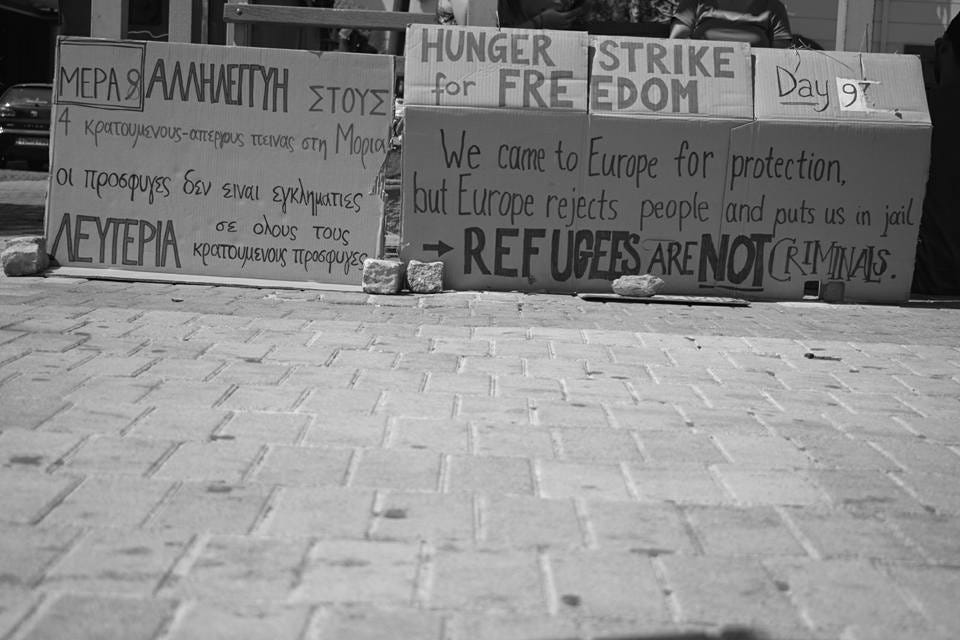 ΜΕΡΑ 8 ΑΛΛΗΛΕΓΓΥΗ ΣΤΟΥΣ
4 κρατουμενους-απεργους πεινας στη Μορια
οι προσφυγες δεν ειναι εγκληματιες
ΛΕΥΤΕΡΙΑ σε ολους τους
κρατουμενους προσφυγες
HUNGER STRIKE
for FREEDOM
Day
We came to Europe for protection,
but Europe rejects people and puts us in jail
→ REFUGEES ARE NOT CRIMINALS.